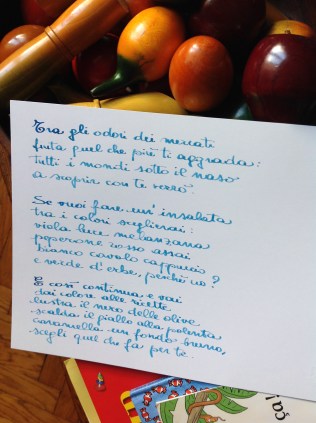 Tra gli odori dei mercati
fiuta quel che più ti aggrada:
tutti i mondi sotto il naso
a scoprir con te verrò.
Se vuoi fare un'insalata
tra i colori sceglierai:
viola luce melanzana
peperone rosso assai
bianco cavolo cappuccio
e verde d'erbe, perché no?
E così continua e vai
dai colore alle ricette
lustra il nero delle olive
scalda il giallo alla polenta
caramella un fondo bruno,
scegli quel che fa per te.